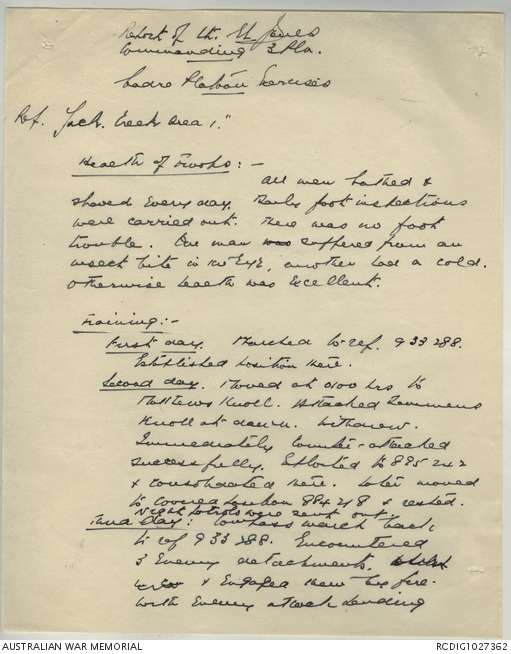 Report of Lt. St Jones
Commanding 3 Pln.
Cadre Platoon Exercises
Ref. Jack Creek Area 1."
Health of Troops: -
All men bathed &
shaved every day. Daily foot inspections
were carried out. There was no foot
trouble. One man was suffered from an
insect bite in his eye, another had a cold.
Otherwise health was excellent.
Training: -
First day. Marched to ref. 933288.
Established position there.
Second day. Moved at 0100 hrs to
Matthews Knoll. Attacked
Knoll at dawn. Withdrew.
Immediately counter-attacked
successfully. Exploited to 895242
& consolidated there. Later moved
to covered position 884248 & rested.
Night patrols were sent out.
Third Day: Compass march back
to ref 933288. Encountered
3 Enemy detachments,
& Engaged them by fire.
with Enemy attack
AUSTRALIAN WAR MEMORIAL
RCDIG1027362